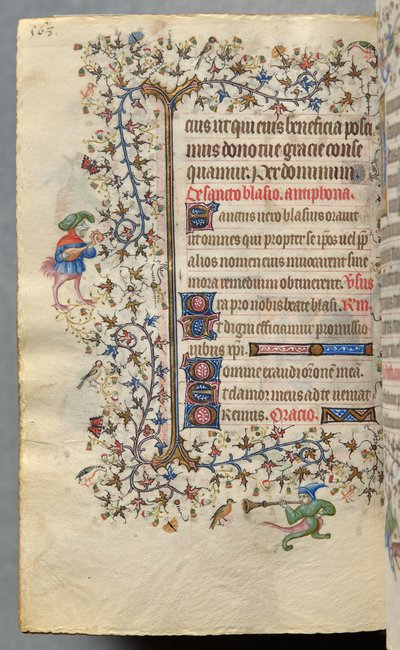 eius ut qui eius beneficia posci
mus dono tue gracie conse
quamur. Per dominum
De sancto blasio. antiphona.
Sanctus vero blasius orauit
ut omnes qui propter se ipos uel pp
alios nomen eius inuocarent sine
mora remedium obtinerent. Vsus
Ora pro nobis beate blasi. Rm
Vt digni efficiamur promissio
nibus xpi.
Domine exaudi orõnem meã.
Et clamor meus ad te veniat
Oremus. Oracio.